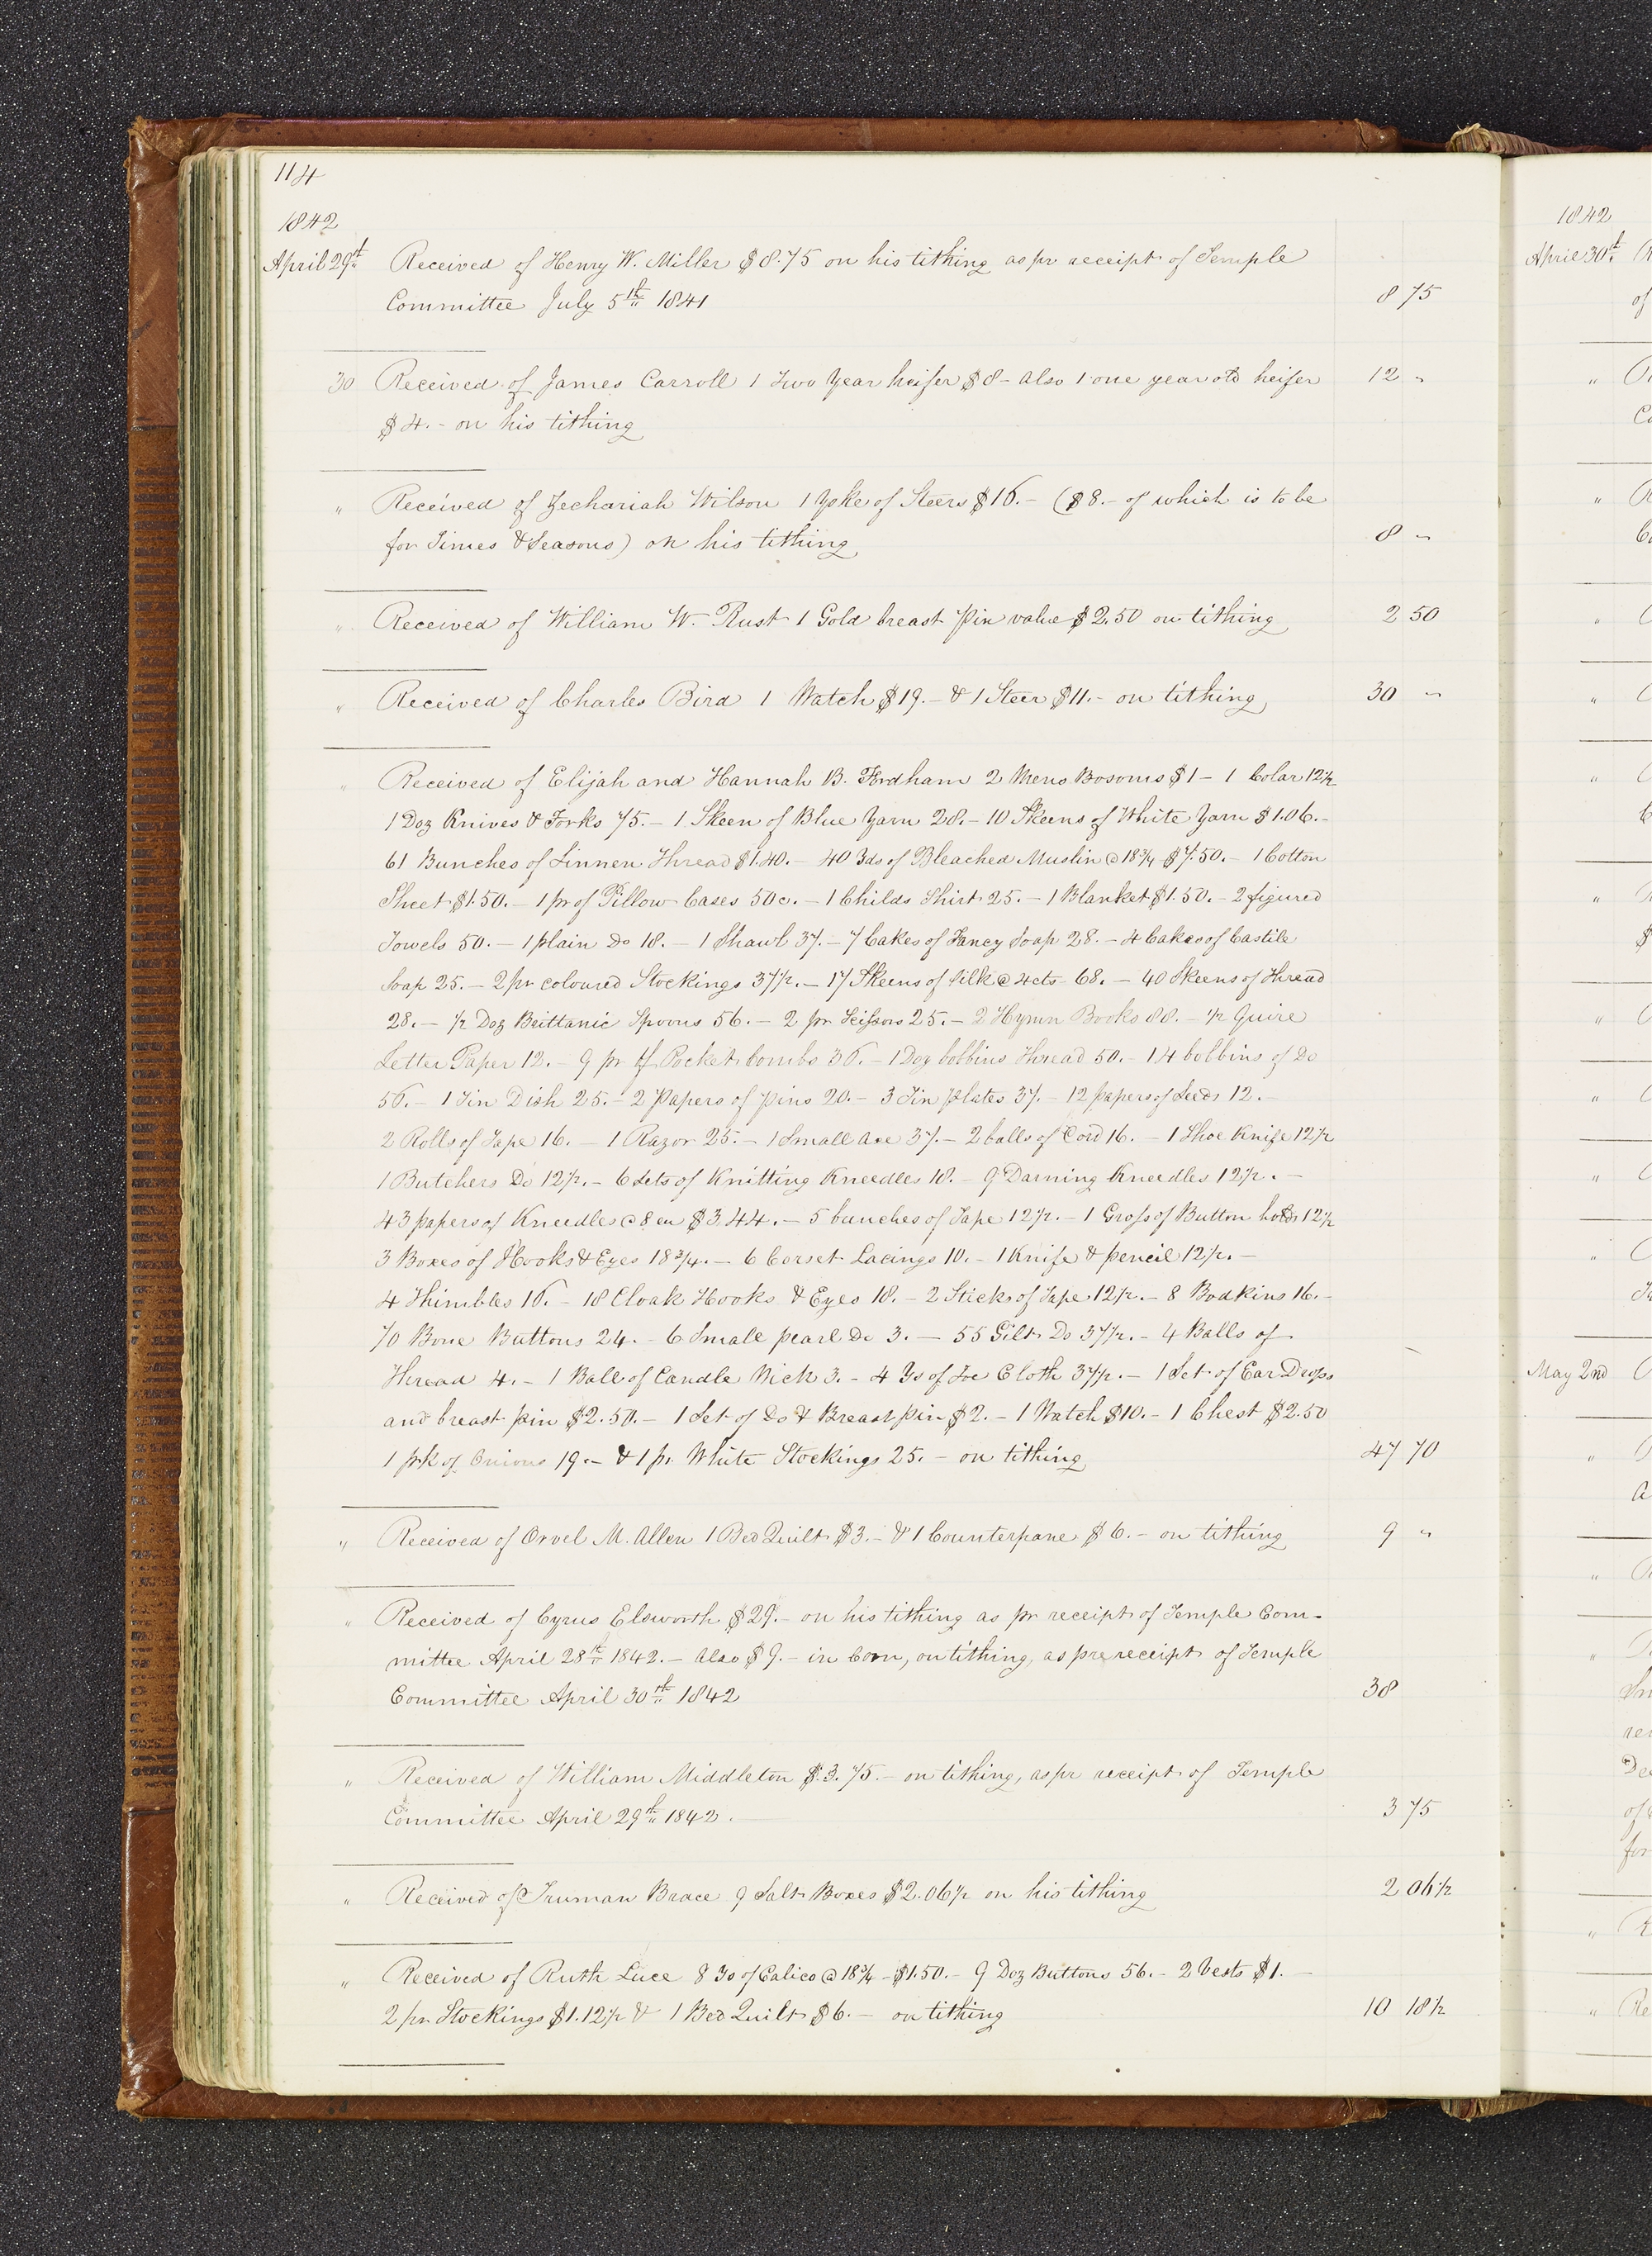 114
1842
April 29th Received of Henry W. Miller $8.75 on his tithing as pr receipt of Temple
Committee July 5th 1841 8 75
30 Received of James Carroll 1 Two Year heifer $8 – also 1 one year old heifer 12 "
$4. – on his tithing
" Received of Zechariah Wilson 1 Yoke of Steers $16. – ($8. – of which is to be
for Times & Seasons) on his tithing 8 "
" Received of William W. Rust 1 Gold breast Pin value $2.50 on tithing 2 50
" Received of Charles Bird 1 Watch $19. – & 1 Steer $11. – on tithing 30 "
" Received of Elijah and Hannah B. Fordham 2 Mens Bosoms $1 – 1 Colar 12½
1 Doz Knives & Forks 75. – 1 Skeen of Blue Yarn 28. – 10 Skeens of White Yarn $1.06. –
61 Bunches of Linnen Thread $1.40. – 40 Yds of Bleached Muslin @ 18¾ $7.50. – 1 Cotton
Sheet $1.50. – 1 pr of Pillow Cases 50c. – 1 Childs Shirt 25. – 1 Blanket $1.50. – 2 figured
Towels 50. – 1 plain Do 18. – 1 Shawl 37. – 7 Cakes of Fancy Soap 28. – 4 Cakes of Castile
Soap 25. – 2 pr coloured Stockings 37½. – 17 Skeens of Silk @ 4cts 68. – 40 Skeens of Thread
28. – ½ Doz Brittanic Spoons 56. – 2 pr Scissors 25. – 2 Hymn Books 88. – ½ Quire
Letter Paper 12. – 9 pr of Pocket Combs 36. – 1 Doz bobbins Thread 50. – 14 bobbins of Do
56. – 1 Tin Dish 25. – 2 Papers of Pins 20. – 3 Tin plates 37. – 12 papers of Seeds 12. –
2 Rolls of Tape 16. – 1 Razor 25. – 1 Small axe 37. – 2 balls of Cord 16. – 1 Shoe Knife 12½
1 Butchers Do 12½. – 6 Sets of Knitting Kneedles 18. – 9 Darning Kneedles 12½. –
43 papers of Kneedles @ 8 $3.44. – 5 bunches of Tape 12½. – 1 Gross of Button 12½
3 Boxes of Hooks & Eyes 18¾. – 6 Corset Lacings 10. – 1 Knife & pencil 12½. –
4 Thimbles 16. – 18 Cloak Hooks & Eyes 18. – 2 Sticks of Tape 12½. – 8 Bodkins 16. –
70 Bone Buttons 24. – 6 Small pearl Do 3. – 55 Gilt Do 37½. – 4 Balls of
Thread 4. – 1 Ball of Candle Wick 3. – 4 Ys of Cloth 37½. – 1 Set of Ear Drops
and breast pin $2.50. – 1 Set of Do & Breast pin $2. – 1 Watch $10. – 1 Chest $2.50
1 pk of Onions 19. – & 1 pr White Stockings 25. – on tithing 47 70
" Received of Orvel M. Allen 1 Bed Quilt $3. – & 1 Counterpane $6. – on tithing 9 "
" Received of Cyrus Elsworth $29. – on his tithing as pr receipt of Temple Com-
mittee April 28th 1842. – also $9. – in Corn, on tithing, as pr receipt of Temple
Committee April 30th 1842 38
" Received of William Middleton $3.75. – on tithing, as pr receipt of Temple
Committee April 29th 1842. 3 75
" Received of Truman Brace 9 Salt Boxes $2.06½ on his tithing 2 06½
" Received of Ruth Luce 8 Yds of Calico @ 18¾ – $1.50. – 9 Doz Buttons 56. – 2 Vests $1. –
2 pr Stockings $1.12½ & 1 Bed Quilt $6. – on tithing 10 18½
1842
April 30th
of
May 2nd